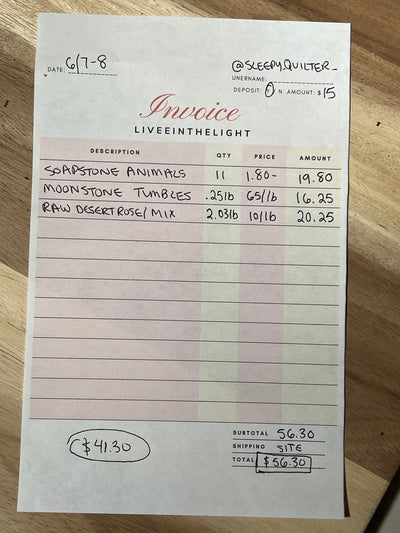 DATE: 6/7-8
@SLEEPY.QUILTER_
UNERNAME:
DEPOSIT: Y N AMOUNT: $15
Invoice
LIVEEINTHELIGHT
DESCRIPTION QTY PRICE AMOUNT
SOAPSTONE ANIMALS 11 1.80- 19.80
MOONSTONE TUMBLES .25lb 65/lb 16.25
RAW DESERT ROSE/MIX 2.03lb 10/lb 20.25
SUBTOTAL 56.30
SHIPPING SITE
TOTAL $56.30
$41.30